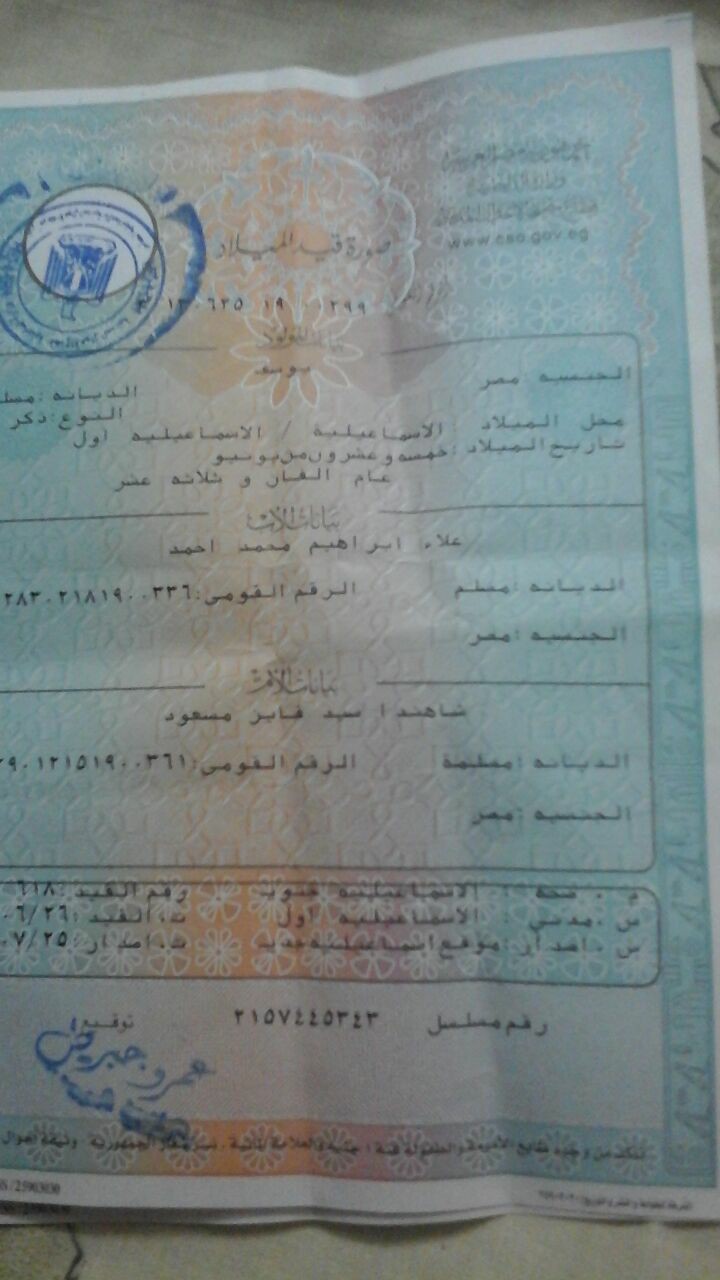 جمهورية مصر العربية
وزارة الداخلية
www.cso.gov.eg
صورة قيد الميلاد
بيانات المولود
يوسف
الجنسية :مصر
الديانه :مسلم
النوع :ذكر
محل الميلاد :الاسماعيلية / الاسماعيليه اول
تاريخ الميلاد :خمسه وعشرون من يونيو
عام الفان و ثلاثه عشر
بيانات الأب
علاء ابراهيم محمد احمد
الديانه :مسلم الرقم القومى:٢٨٣٠٢١٨١٩٠٠٣٣٦
الجنسيه :مصر
بيانات الأم
شاهندا سيد فايز مسعود
الديانه :مسلمة الرقم القومى:٢٩٠١٢١٥١٩٠٠٣٦١
الجنسيه :مصر
م . صحة : الاسماعيلية جنوب رقم القيد :٦١٨
س .مدنى : الاسماعيلية اول ت. القيد :٠٦/٢٦
س .اصدار :موقع اسماعيليه جديد ت. اصدار :٠٧/٢٥
رقم مسلسل ٢١٥٧٤٤٥٣٤٣ توقيع: